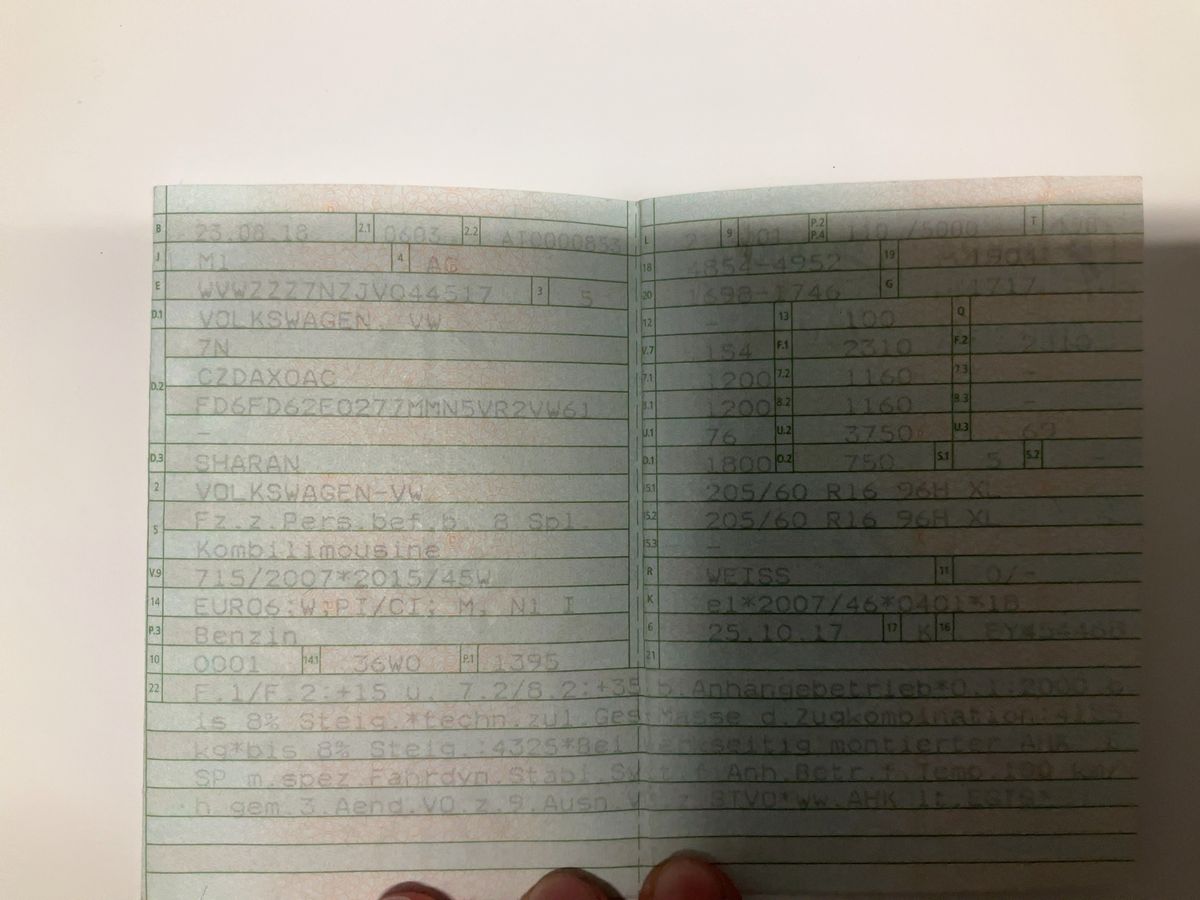 B 23.08.18 2.1 0603 2.2 AIC000853
J M1 4 AC
E WVWZZZ7NZJV044517 3 5
D.1 VOLKSWAGEN, VW
7N
D.2 CZDAX0AC
FD6FD62E0277MMN5VR2VW61
-
D.3 SHARAN
2 VOLKSWAGEN-VW
5 Fz.z.Pers.bef.b. 8 Spl.
Kombilimousine
V.9 715/2007*2015/45W
14 EURO6;W;PI/CI; M, N1 I
P.3 Benzin
10 0001 14.1 36W0 P.1 1395
L 2 9 P.2 P.4 110 /5000 T
18 4854-4952 19
20 1698-1746 G 1717
12 - 13 100 Q -
V.7 154 F.1 2310 F.2 2310
7.1 1200 7.2 1160 7.3 -
8.1 1200 8.2 1160 8.3 -
U.1 76 U.2 3750 U.3 69
O.1 1800 O.2 750 S.1 5 S.2 -
15.1 205/60 R16 96H XL
15.2 205/60 R16 96H XL
15.3 -
R WEISS 11 0/-
K e1*2007/46*0401*18
6 25.10.17 17 K 16
21
22 F.1/F.2:+15 u. 7.2/8.2:+35 b.Anhängebetrieb*O.1:2000 b
is 8% Steig.*techn.zul.Ges.Masse d.Zugkombination:
kg*bis 8% Steig.:4325*Bei werkseitig montierter AHK
SP m.spez.Fahrdyn.Stabi.Syst.f.Anh.Betr.f.Temp.100 km/
h gem.3.Aend.VO.z.9.Ausn.V. z. STVO*ww.AHK lt.EGTG*